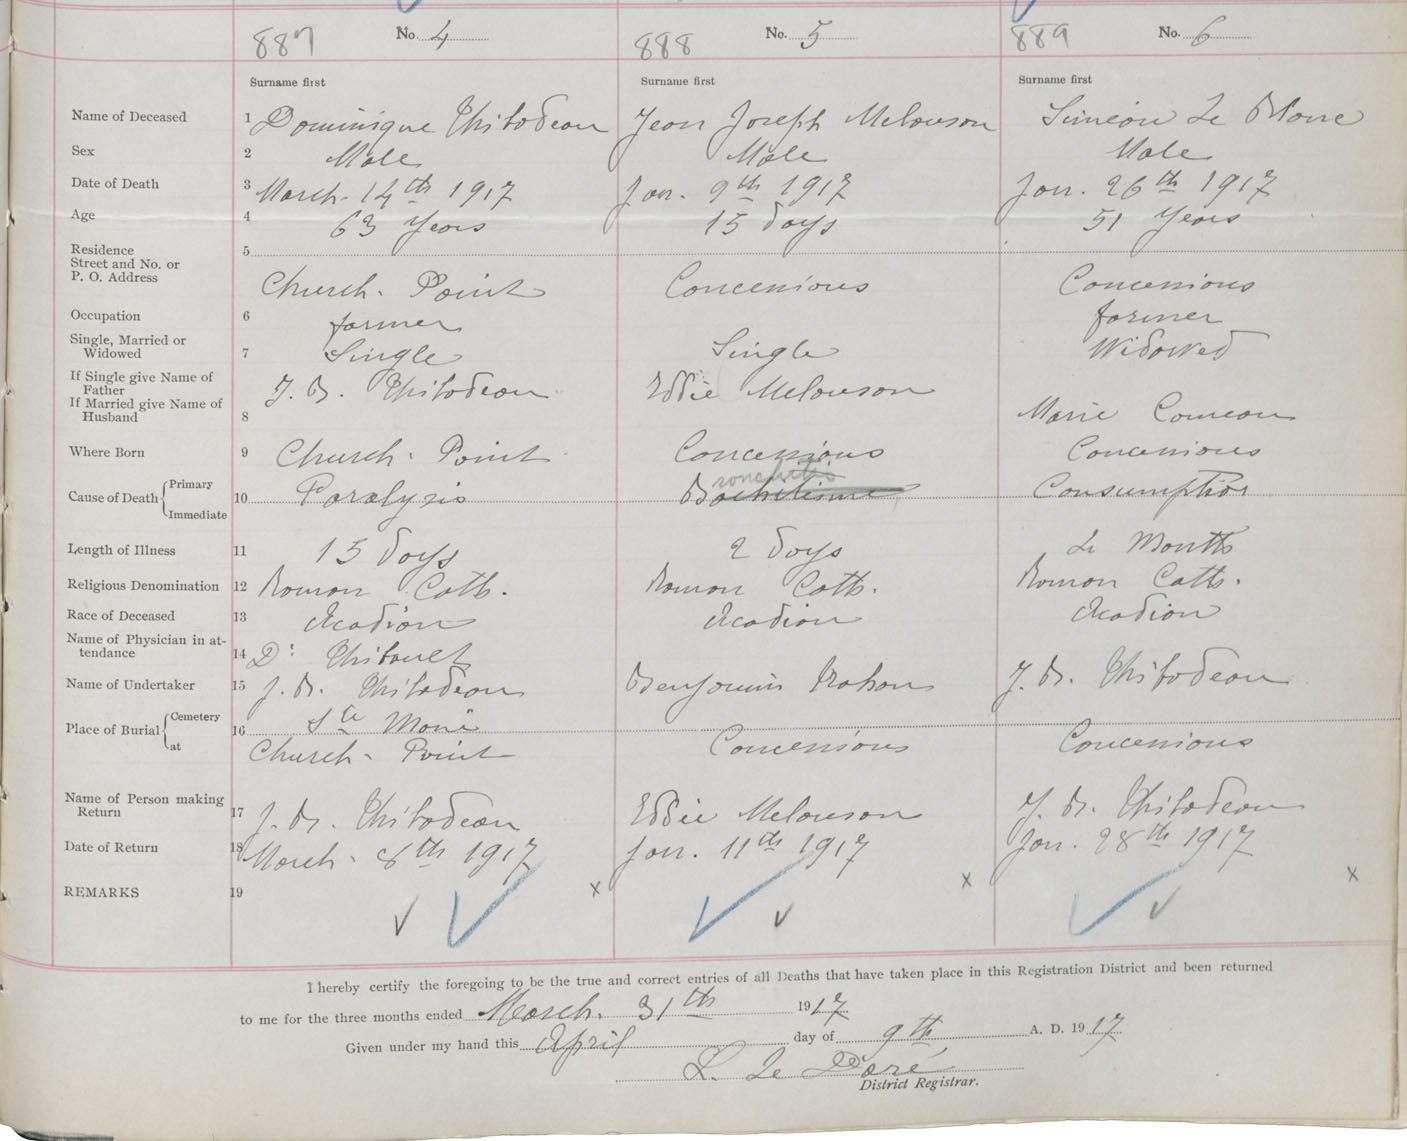 887 No. 4 888 No. 5 889 No. 6
Surname first Surname first Surname first
Name of Deceased 1 Dominique Thibodeau Jean Joseph Melanson Simeon Le Blanc
Sex 2 Male Male Male
Date of Death 3 March. 14th 1917 Jan. 9th 1917 Jan. 26th 1917
Age 4 63 Years 15 days 51 Years
Residence 5
Street and No. or
P. O. Address Church. Point Concessions Concessions
Occupation 6 farmer farmer
Single, Married or
Widowed 7 Single Single Widowed
If Single give Name of
Father J. B. Thibodeau Eddie Melanson
If Married give Name of
Husband 8 Marie Comeau
Where Born 9 Church. Point Concessions Concessions
Cause of Death Primary ronchitis
10 Paralysis Consumption
Immediate
Length of Illness 11 15 days 2 days Months
Religious Denomination 12 Roman Cath. Roman Cath. Roman Cath.
Race of Deceased 13 Acadian Acadian Acadian
Name of Physician in at-
tendance 14 Dr Thibault
Name of Undertaker 15 J. B. Thibodeau Benjamin J. B. Thibodeau
Place of Burial Cemetery 16 Ste Marie
at Church. Point Concessions Concessions
Name of Person making
Return 17 J. B. Thibodeau Eddie Melanson J. B. Thibodeau
Date of Return 18 March. 8th 1917 Jan. 11th 1917 Jan. 28th 1917
REMARKS 19 x x x
I hereby certify the foregoing to be the true and correct entries of all Deaths that have taken place in this Registration District and been returned
to me for the three months ended March. 31th 1917
Given under my hand this April day of 9th A. D. 1917
L. Le Doré
District Registrar.